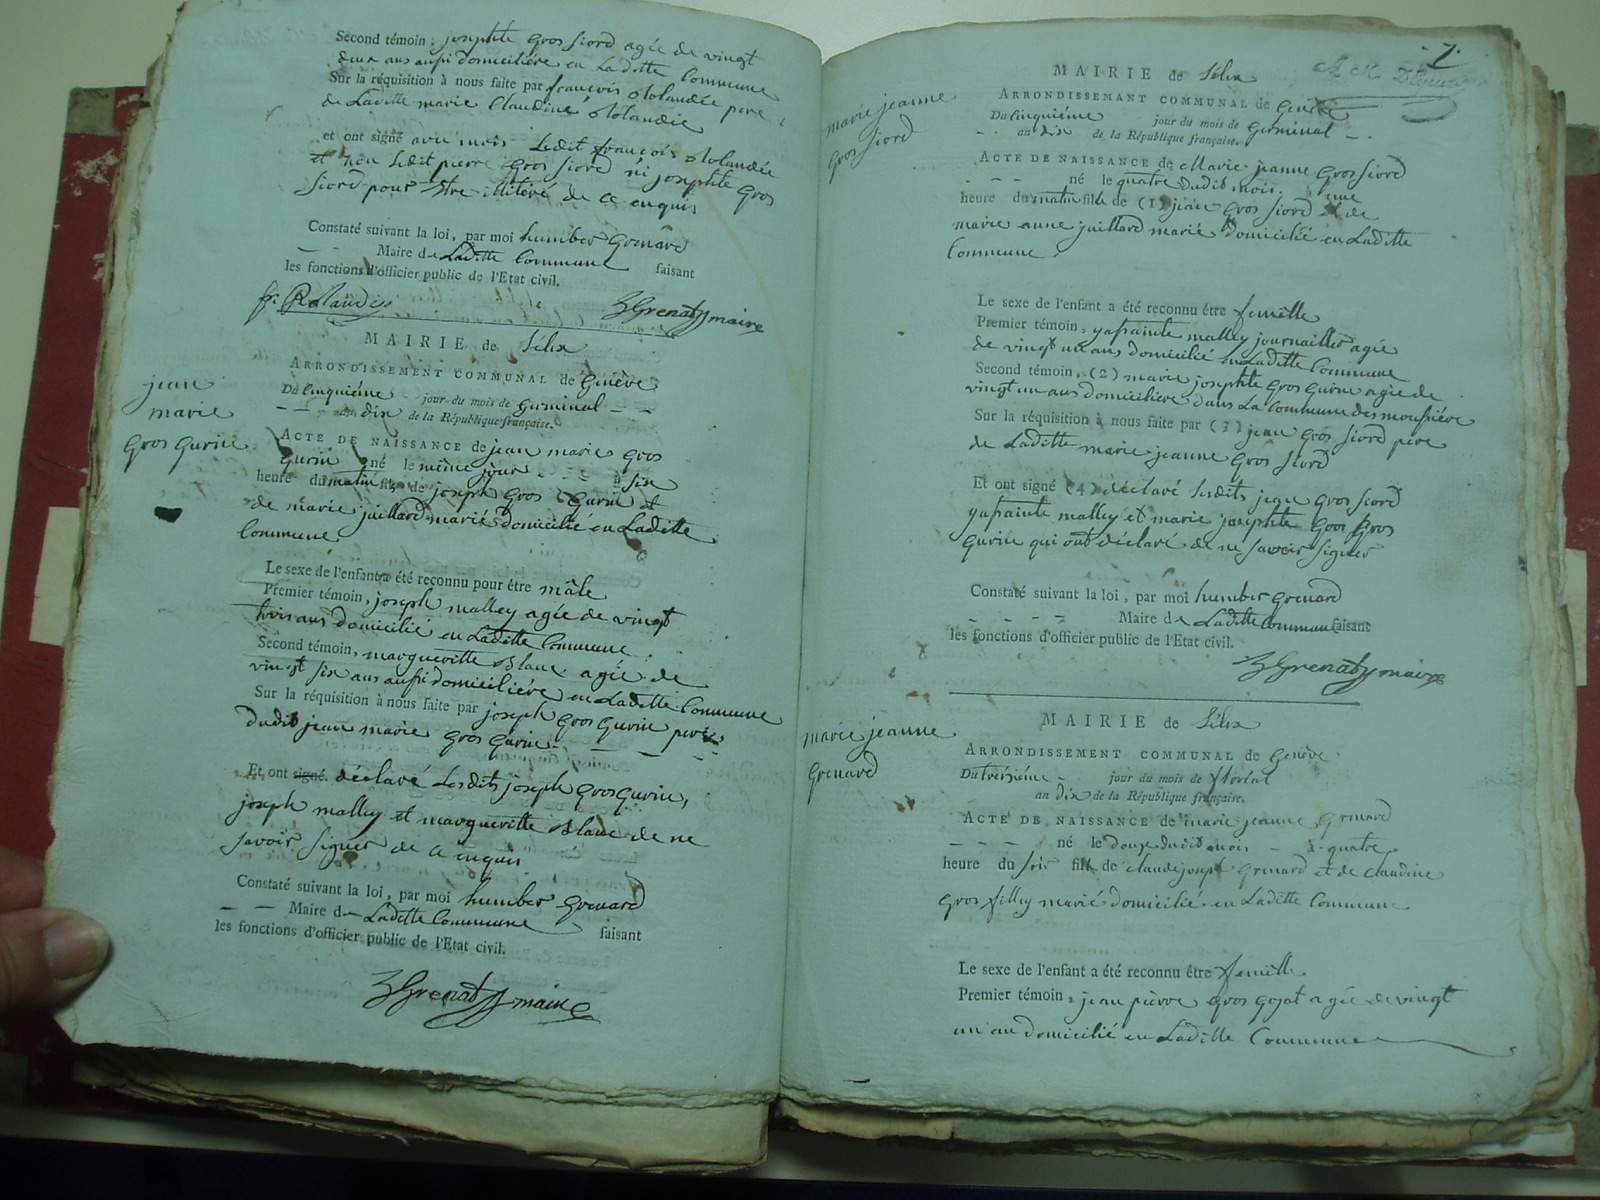 Second témoin, josephte gros siord agée de vingt
deux ans aussi domiciliére en Laditte Commune
Sur la réquisition à nous faite par françois Rolandée pere
de Laditte marie Claudine Rolandée
et ont signé avec moi Ledit françois Rolandée
et non Ledit pierre gros siord ni josephte gros
siord pour etre illiteré de ce enquis
Constaté suivant la loi, par moi humber grenard
Maire de Laditte Commune faisant
les fonctions d'officier public de l'Etat civil.
fr. Rolandes grenat maire
MAIRIE de Sélix
ARRONDISSEMENT COMMUNAL de Genève
Du Cinquiéme jour du mois de Germinal
an dix de la République française.
jean
marie
gros gurin
ACTE DE NAISSANCE de jean marie gros
gurin né le même jour à six
heure du matin fils de joseph gros gurin et
de marie juillard marié domicilié en Laditte
Commune
Le sexe de l'enfant a été reconnu pour être mâle
Premier témoin, joseph malley agée de vingt
trois ans domicilié en Laditte Commune
Second témoin, margueritte blanc agée de
vingt six ans aussi domiciliére en Laditte Commune
Sur la réquisition à nous faite par joseph gros gurin pere
dudit jean marie gros gurin
Et ont signé. déclaré Lesdits joseph gros gurin,
joseph malley et margueritte blanc de ne
savoir signer de ce enquis
Constaté suivant la loi, par moi humber grenard
Maire de Laditte Commune faisant
les fonctions d'officier public de l'Etat civil.
grenat maire
7.
MAIRIE de Sélix
ARRONDISSEMANT COMMUNAL de Genève
Du Cinquiéme jour du mois de Germinal
an dix de la République française.
marie jeanne
gros siord
ACTE DE NAISSANCE de Marie jeanne gros siord
né le quatre dudit mois. une
heure du matin fille de (1) jean gros siord et de
marie anne juillard marié domicilié en Laditte
Commune
Le sexe de l'enfant a été reconnu être femelle
Premier témoin, malley journaillier agée
de vingt un ans domicilié en Laditte Commune
Second témoin, (2) marie josephte gros gurin agée de
vingt un ans domiciliere dans La Commune des
Sur la réquisition à nous faite par (3) jean gros siord pere
de Laditte marie jeanne gros siord
Et ont signé (4) déclaré Lesdits gros siord
malley et marie josephte gros gros
gurin qui ont déclaré de ne savoir signer
Constaté suivant la loi, par moi humber grenard
Maire de Laditte Commune faisant
les fonctions d'officier public de l'Etat civil.
grenat maire
MAIRIE de Sélix
ARRONDISSEMENT COMMUNAL de Genève
Du treisiéme jour du mois de floréal
an dix de la République française.
marie jeanne
grenard
ACTE DE NAISSANCE de marie jeanne grenard
né le douze dudit mois à quatre
heure du soir fille de claude joseph grenard et de claudine
gros filley marié domicilié en Laditte Commune
Le sexe de l'enfant a été reconnu être femelle
Premier témoin, jean pièrre gros gojat agée de vingt
un an domicilié en Laditte Commune